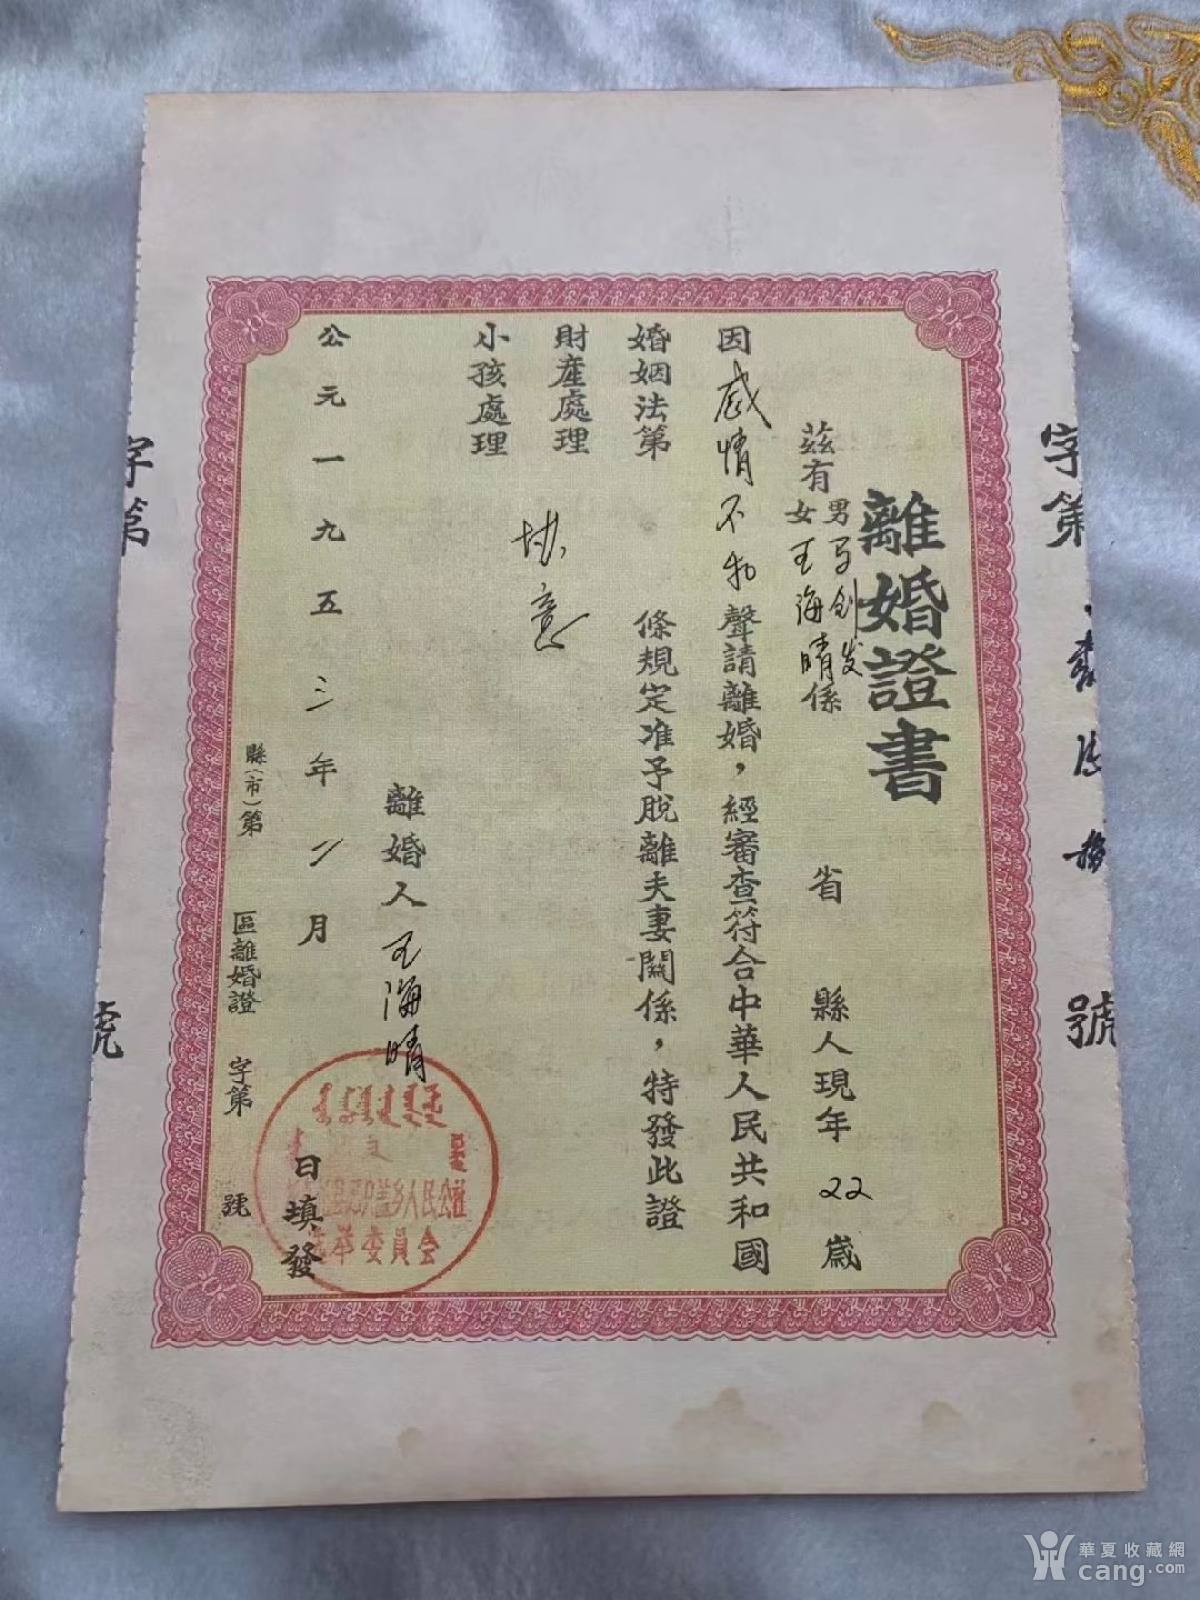 離婚證書
茲有
男马剑发
女王海晴
係 省 縣人現年22歲
因感情不和聲請離婚，經審查符合中華人民共和國
婚姻法第 條規定准予脫離夫妻關係，特發此證
財產處理
協意
小孩處理
離婚人王海晴
公元一九五三年 月 日填發
縣(市)第 區離婚證 字第 號
人民公社
委員会
字第
號
字第
號
華夏收藏網
cang.com